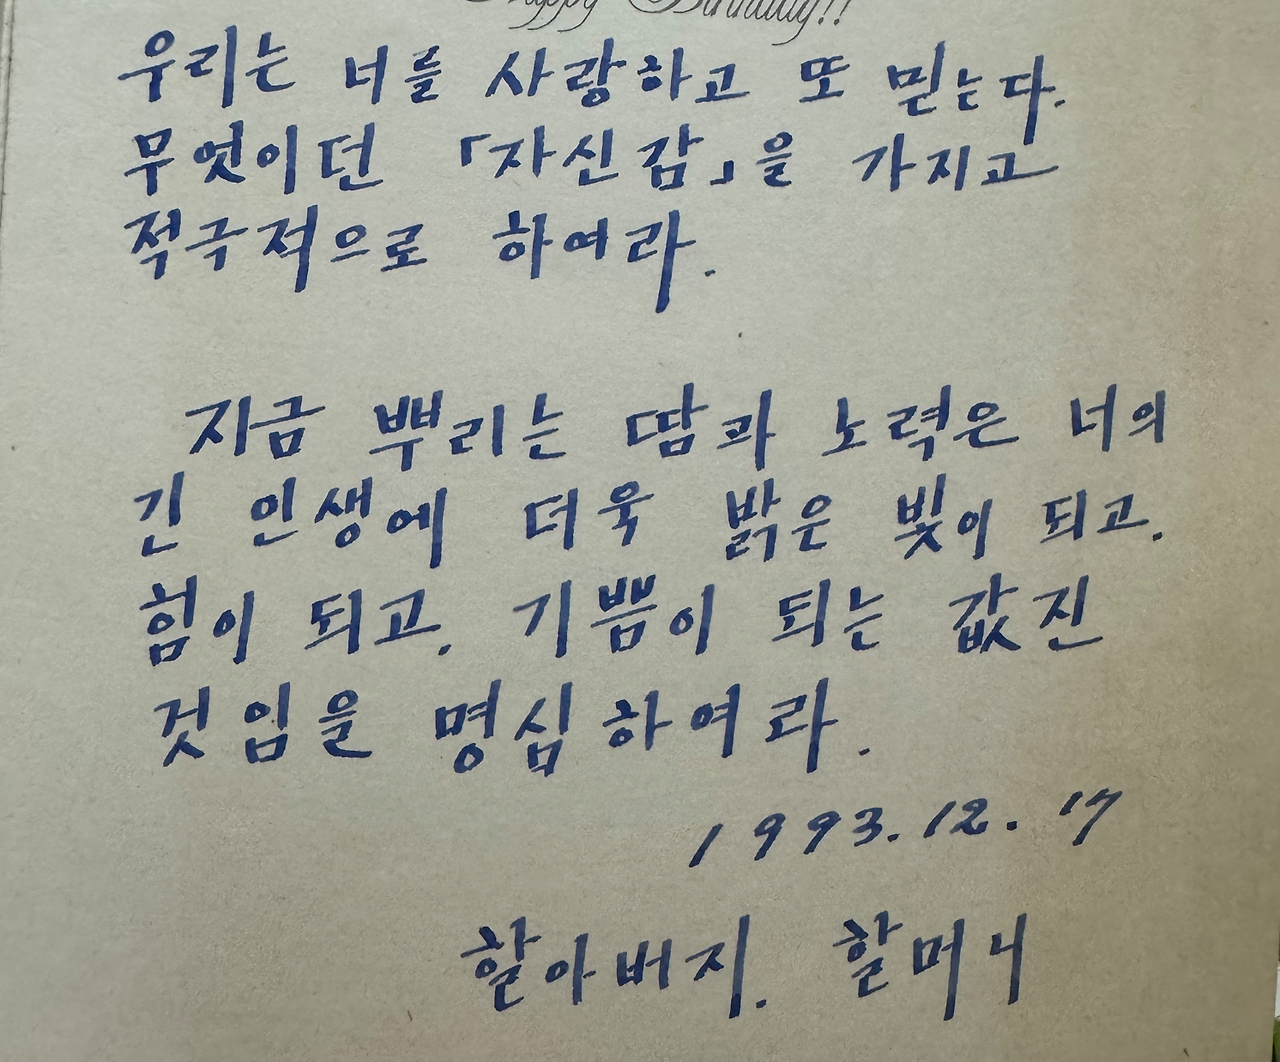 Happy Birthday!!
우리는 너를 사랑하고 또 믿는다.
무엇이던 「자신감」을 가지고
적극적으로 하여라.
지금 뿌리는 땀과 노력은 너의
긴 인생에 더욱 밝은 빛이 되고.
힘이 되고. 기쁨이 되는 값진
것임을 명심하여라.
1993. 12. 17
할아버지. 할머니